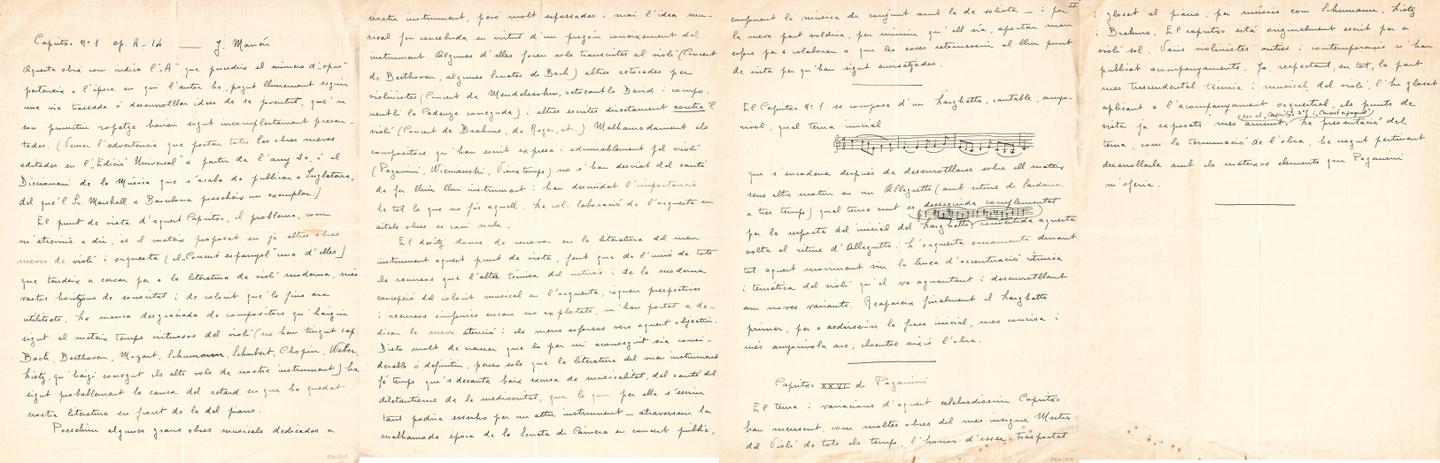 Capritxo Nº 1 op. A-14 — J. Manén
Aquesta obra com indica l'"A" que precedeix el número d'"opus"
perteneix a l'época en que l'autor ha pogut lliurement seguir
una via traçada ó desenrotllar idees de sa joventut, que'n
son primitiu ropatge havien sigut incomplertament presen-
tades. (Veure l'advertencia que porten totes les obres meves
editades en l'"Edició Universal" a partir de l'any , ó el
Diccionari de la Música que s'acaba de publicar a Inglaterra,
del qué'l Sr. Marshall a Barcelona posseheix un exemplar)
El punt de vista d'aquest Capritxo, el problema, com
m'atreviria a dir, es el mateix proposat en ja altres obres
meves de violí i orquestra (el "Concert espanyol" una d'elles)
que tendeix a cercar per a la literatura de violí moderna, més
vastos horitzons de sonoritat i de colorit que'ls fins ara
utilitzats. La manca desgraciada de compositors qu'haigin
sigut al mateix temps virtuosos del violí (no han tingut cap
Bach, Beethoven, Mozart, Schumann, Schubert, Chopin, Weber,
Liszt, qu'haigi conegut els alts vols de nostre instrument) ha
sigut probablement la causa del retard en que ha quedat
nostra literatura en front de la del piano.
Possehim algunes grans obres musicals dedicades a
nostre instrument, peró molt espassades i mai l'idea mu-
sical fou concebida en virtut d'un pregón coneixement del
instrument. Algunes d'elles foren sols transcrites al violí (Concert
de Beethoven, algunes Sonates de Bach) altres retocades per
violinistes (Concert de Mendelssohn, retocant-lo David i compo-
nentli la Cadenza coneguda) i altres escrites directament contra'l
violí (Concert de Brahms, de Reger, etc.) Malhauradament els
compositors qu'han escrit expres i admirablement pel violí
(Paganini, Wieniawski, Vieuxtemps) no s'han desviat del cantó
de fer lluir llur instrument i han descuidat l'importancia
de tot lo que no fós aquell. La col·laboració de l'orquestra en
aitals obres es casi nula.
El desitg doncs de renovar en la literatura del meu
instrument aquest punt de vista, fent que de l'unió de tots
els recursos que l'alta técnica del intrús i de la moderna
concepció del colorit musical en l'orquestra, isquen perspectives
i recursos simfónics encare no explotats, m'han portat a de-
dicar la meva atenció i els meus esforsos vers aquest objectiu.
Disto molt de creurer que lo per mi aconseguit sia consi-
derable ó definitiu, penso sols que la literatura del meu instrument
fá temps que's decanta baix excusa de musicalitat, del cantó del
diletantisme de la mediocritat, que lo que per ella s'escriu
tant podria essenho per un altre instrument — atravessem la
malhaurada época de la Sonata de Cámera en concert públic,
confonent la música de conjunt amb la de solista — i per
la meva part voldria, per mínim qu'ell sia, aportar mon
esforç per a colaborar a que les coses retornessin al lluc punt
de vista per qu'han sigut enrsatjades.
El Capritxo Nº 1 se composa d'un Larghetto, cantable, amo-
rivol, qual tema inicial
que s'encadena després de desenrotllarse sobre ell mateix
sens altre motiu en un Allegretto (amb ritme de sardana
a tres temps) qual tema nou es desseguida complementat
per la resposta del inicial del Larghetto, convertida aquesta
volta al ritme d'Allegretto. L'orquestra ornamenta durant
tot aquest moviment viu, la linea d'accentuació rítmica
i temática del violí qu'el va aguantant i desenrotllant
am noves variants. Reapareix finalment el Larghetto
primer, per a redirseim la frase inicial, mes concisa i
més amorivola are, cloentse aixís l'obra.
Capritxo XXVI de Paganini
El tema i variacions d'aquest celebradissim Capritxo
han merescut, com moltes obres del mes insigne Mestre
del Violí de tots els temps, l'honor d'esser trasportat
i glosat al piano, per músics com Schumann, Liszt
i Brahms. El capritxo está originalment escrit per a
violí sol. Varis violinistes antics i contemporanis n'han
publicat acompanyaments. Jo, respectant, en tot, la part
mes trascendental técnica i musical del violí, l'he glosat
aplicant a l'acompanyament orquestral, els punts de
vista ja exposats mes amunt. (en el Capritxo nº 1 i Concert espanyol) La presentació del
tema, com la terminació de l'obra, he negut pertinent
desarrollarla amb els mateixos elements que Paganini
m'oferia.